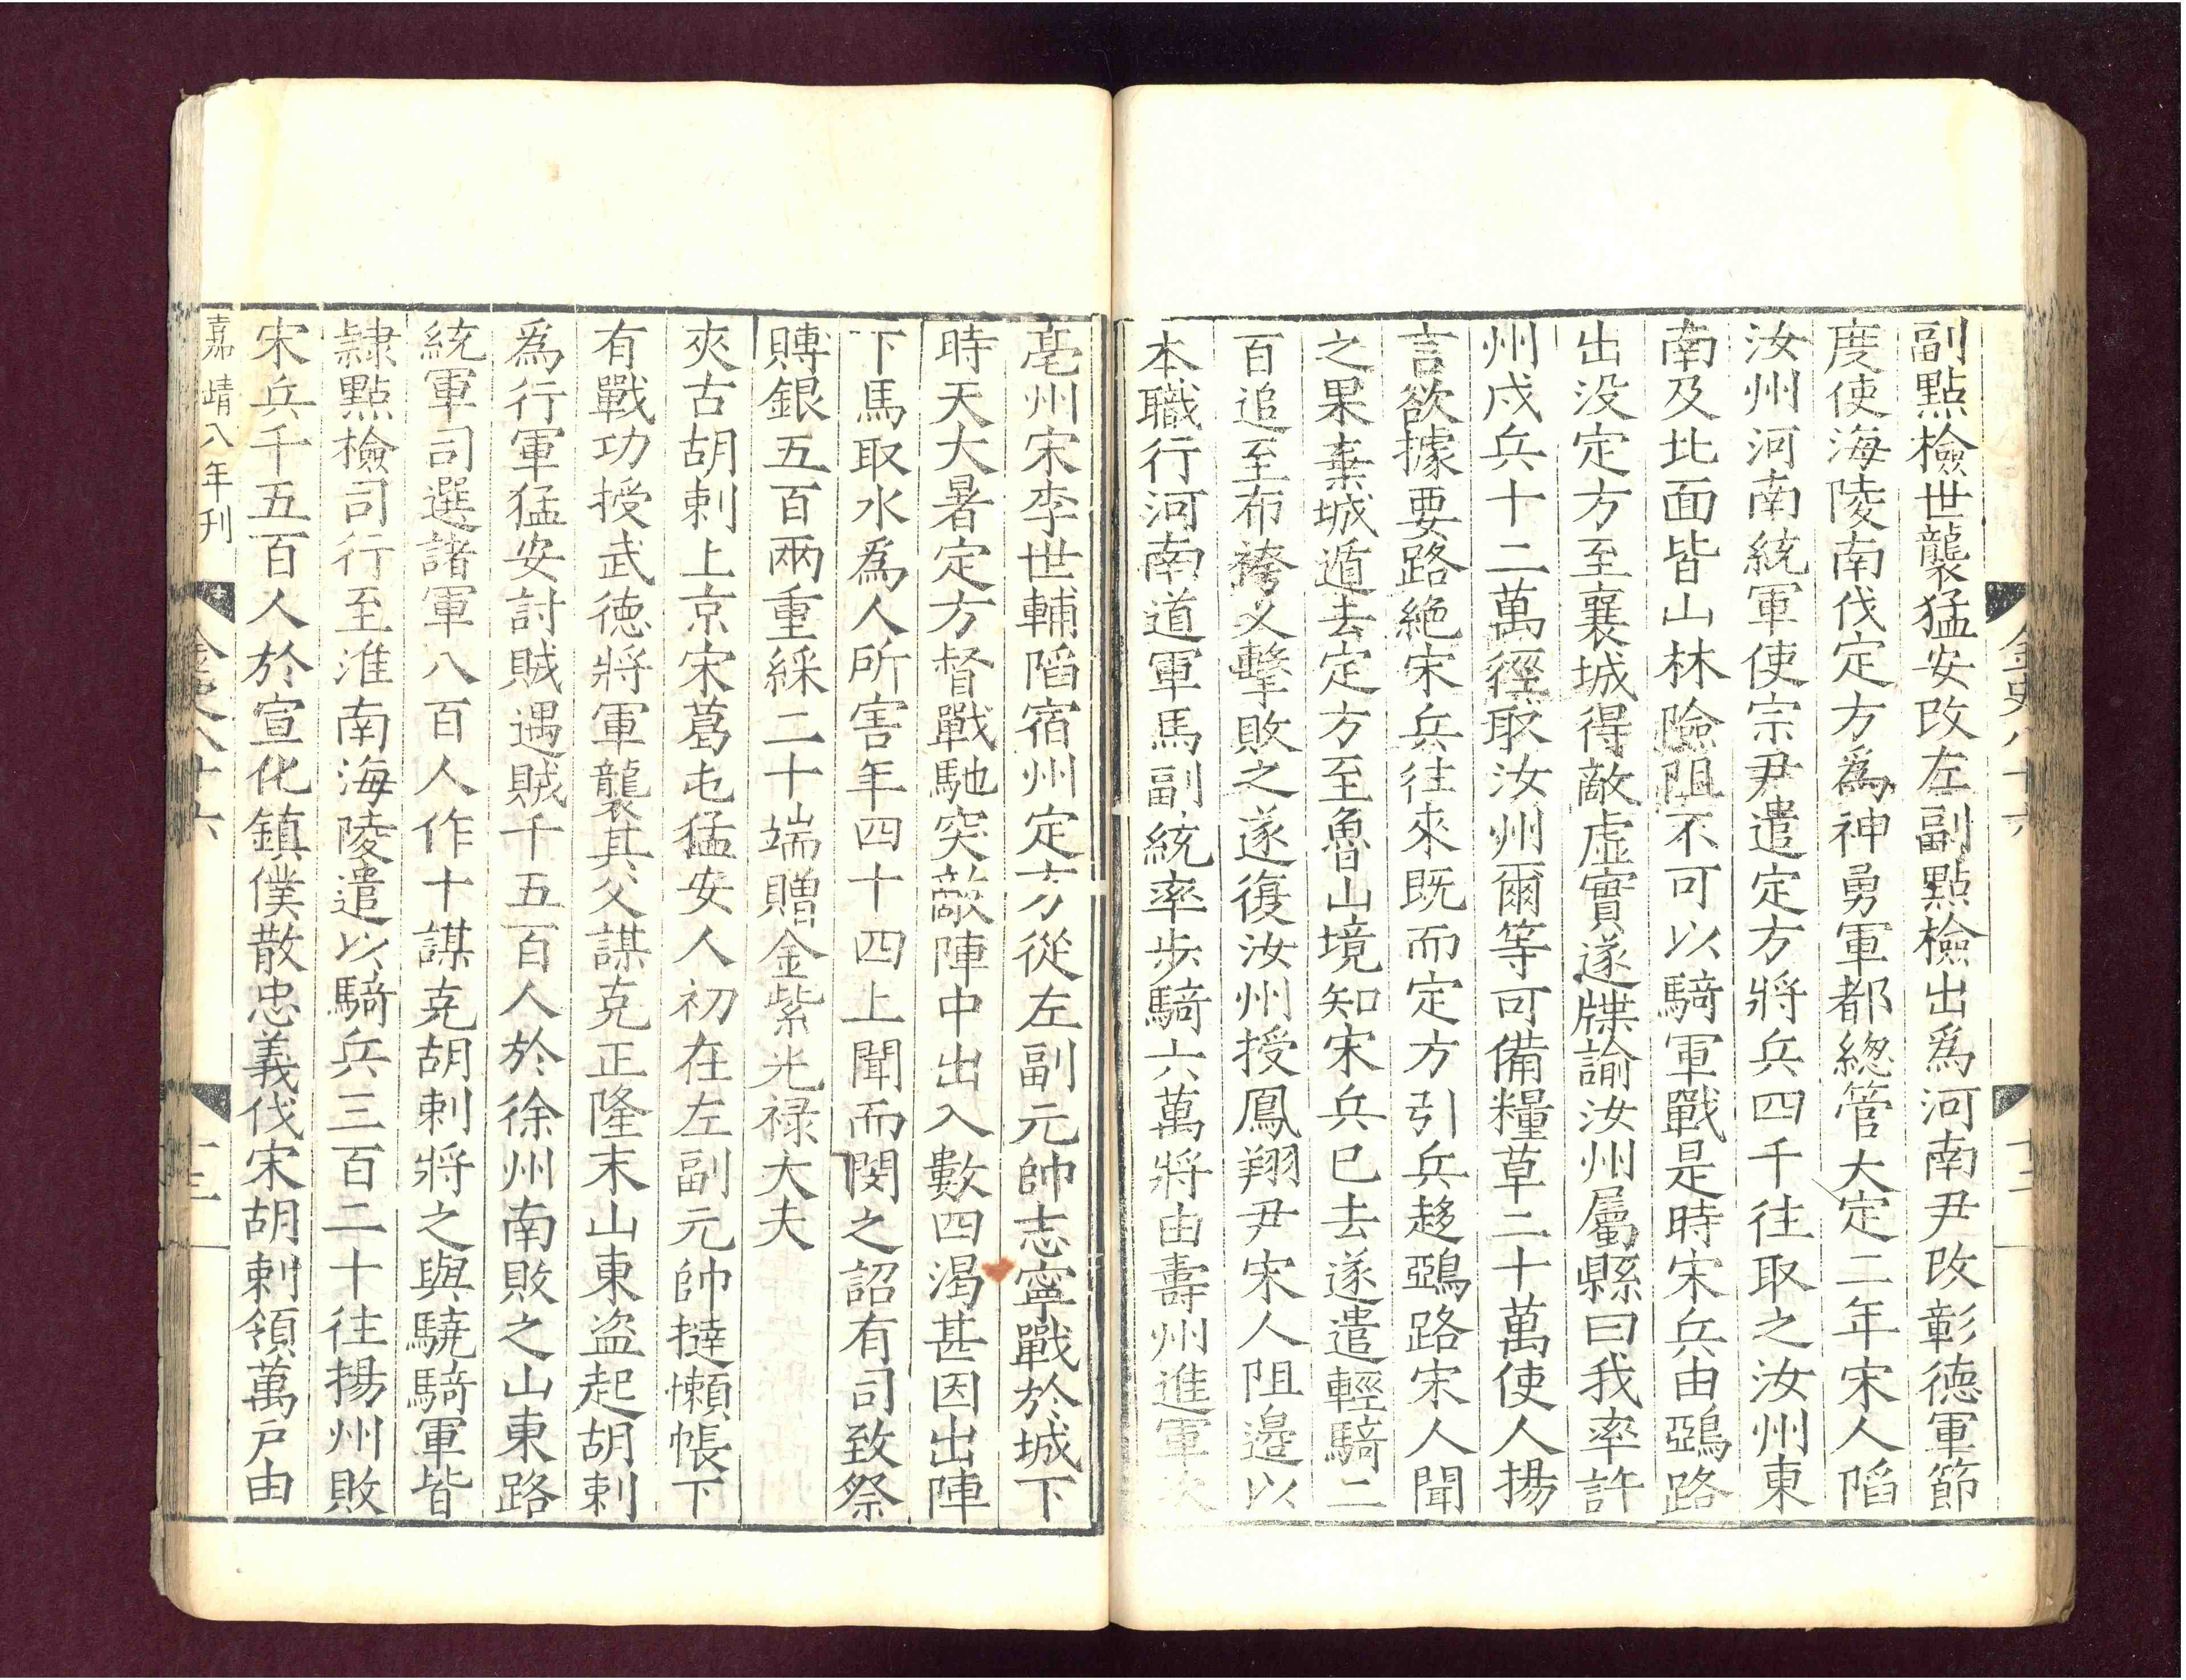 金史八十六
十二
副點檢世襲猛安改左副點檢出爲河南尹改彰德軍節
度使海陵南伐定方爲神勇軍都總管大定二年宋人陷
汝州河南統軍使宗尹遣定方將兵四千往取之汝州東
南及北面皆山林險阻不可以騎軍戰是時宋兵由鵶路
出没定方至襄城得敵虛實遂牒諭汝州屬縣曰我率許
州戍兵十二萬徑取汝州爾等可備糧草二十萬使人揚
言欲據要路絶宋兵往來既而定方引兵趍鵶路宋人聞
之果棄城遁去定方至魯山境知宋兵已去遂遣輕騎二
百追至布袴乂擊敗之遂復汝州授鳳翔尹宋人阻邉以
本職行河南道軍馬副統率步騎六萬將由壽州進軍次
亳州宋李世輔陷宿州定方從左副元帥志寧戰於城下
時天大暑定方督戰馳突敵陣中出入數四渴甚因出陣
下馬取水爲人所害年四十四上聞而閔之詔有司致祭
賻銀五百兩重綵二十端贈金紫光禄大夫
夾古胡剌上京宋葛屯猛安人初在左副元帥撻懶帳下
有戰功授武德將軍襲其父謀克正隆末山東盜起胡剌
爲行軍猛安討賊遇賊千五百人於徐州南敗之山東路
統軍司選諸軍八百人作十謀克胡剌將之與驍騎軍皆
隷點檢司行至淮南海陵遣以騎兵三百二十往揚州敗
宋兵千五百人於宣化鎮僕散忠義伐宋胡剌領萬戶由
嘉靖八年刊
金史八十六
十三